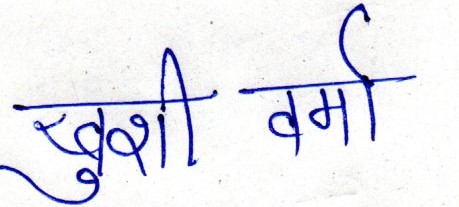 खुशी वर्मा